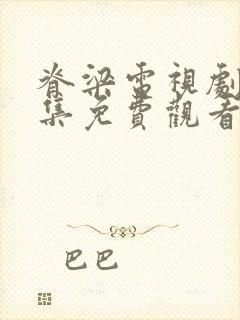 脊梁電視劇
集免費觀看
巴巴